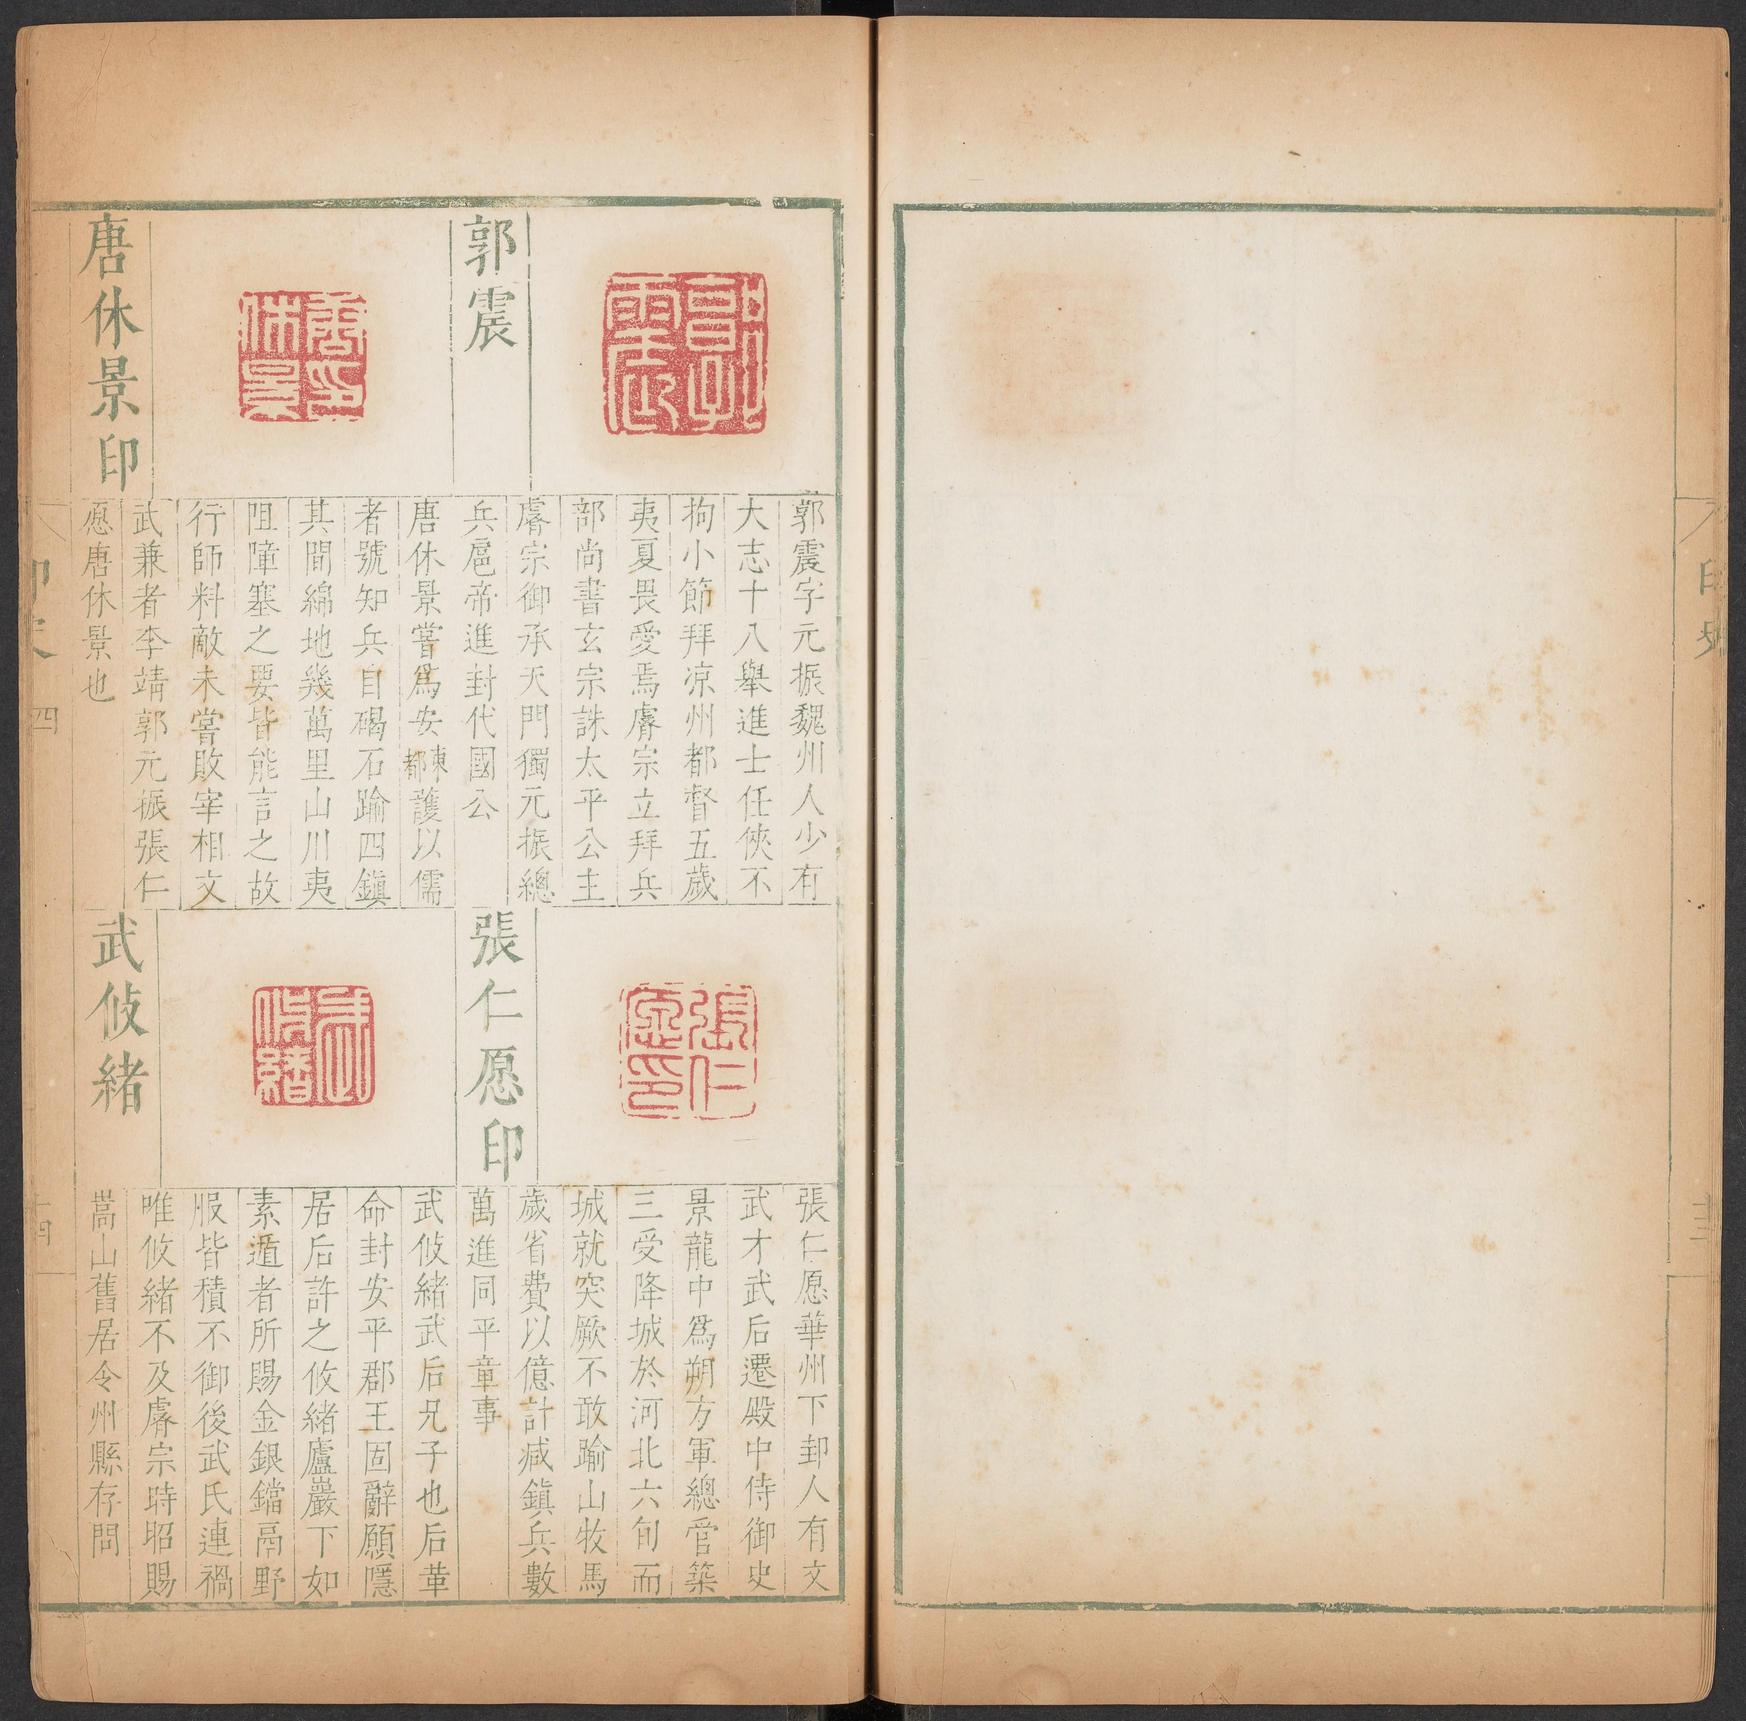 印史
郭震
郭震字元振魏州人少有
大志十八舉進士任俠不
拘小節拜凉州都督五歲
夷夏畏愛焉睿宗立拜兵
部尚書玄宗誅太平公主
睿宗御承天門獨元振總
兵扈帝進封代國公
唐休景印
唐休景嘗爲安東都護以儒
者號知兵自碣石踰四鎮
其間綿地幾萬里山川夷
阻障塞之要皆能言之故
行師料敵未嘗敗宰相文
武兼者李靖郭元振張仁
愿唐休景也
張仁愿印
張仁愿華州下邽人有文
武才武后遷殿中侍御史
景龍中爲朔方軍總官築
三受降城於河北六旬而
城就突厥不敢踰山牧馬
歲省費以億計减鎮兵數
萬進同平章事
武攸緒
武攸緒武后兄子也后革
命封安平郡王固辭願隱
居后許之攸緒廬巖下如
素遁者所賜金銀鐺鬲野
服皆積不御後武氏連禍
唯攸緒不及睿宗時昭賜
嵩山舊居令州縣存問
印史
四
十四